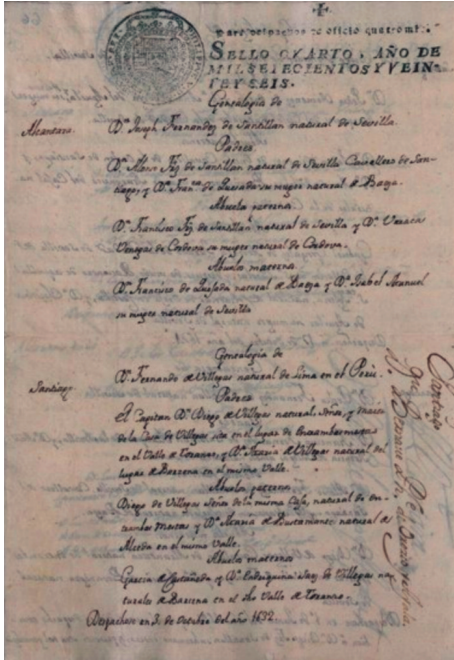 para despachos de oficio quatro mrs.
SELLO QVARTO, AÑO DE
MIL SETECIENTOS Y VEIN-
TE Y SEIS.
Genealogia de
Alcantara. Dn. Joseph Fernandez de Santillan natural de Sevilla.
Padres
Dn. Alonso Frz de Santillan natural de Sevilla Cavallero de San-
tiago, y Da. Franca de Quesada su muger natural de Baeza.
Abuelos paternos
Dn. Francisco Frz de Santillan natural de Sevilla y Da.
Venegas de Cordova su muger natural de Cordova.
Abuelos maternos
Dn. Francisco de Quesada natural de Baeza y Da. Isabel Manuel
su muger natural de Sevilla
Genealogia de
Santiago. Dn. Fernando de Villegas natural de Lima en el Peru.
Padres
El Capitan Dn. Diego de Villegas natural, Señor, y
de la Casa de Villegas sita en el lugar de
en el Valle de Toranzo, y Da. Maria de Villegas natural del
lugar de Barcena en el mismo Valle.
Abuelos paternos
Diego de Villegas Señor de la misma Casa, natural de en-
trambas Mestas y Da. Maria de Bustamante natural de
Alceda en el mismo Valle.
Abuelos maternos
Garcia de Castañeda y Da. de Villegas na-
turales de Barcena en el dho Valle de Toranzo.
Despachose en 3. de Octubre del año 1632.